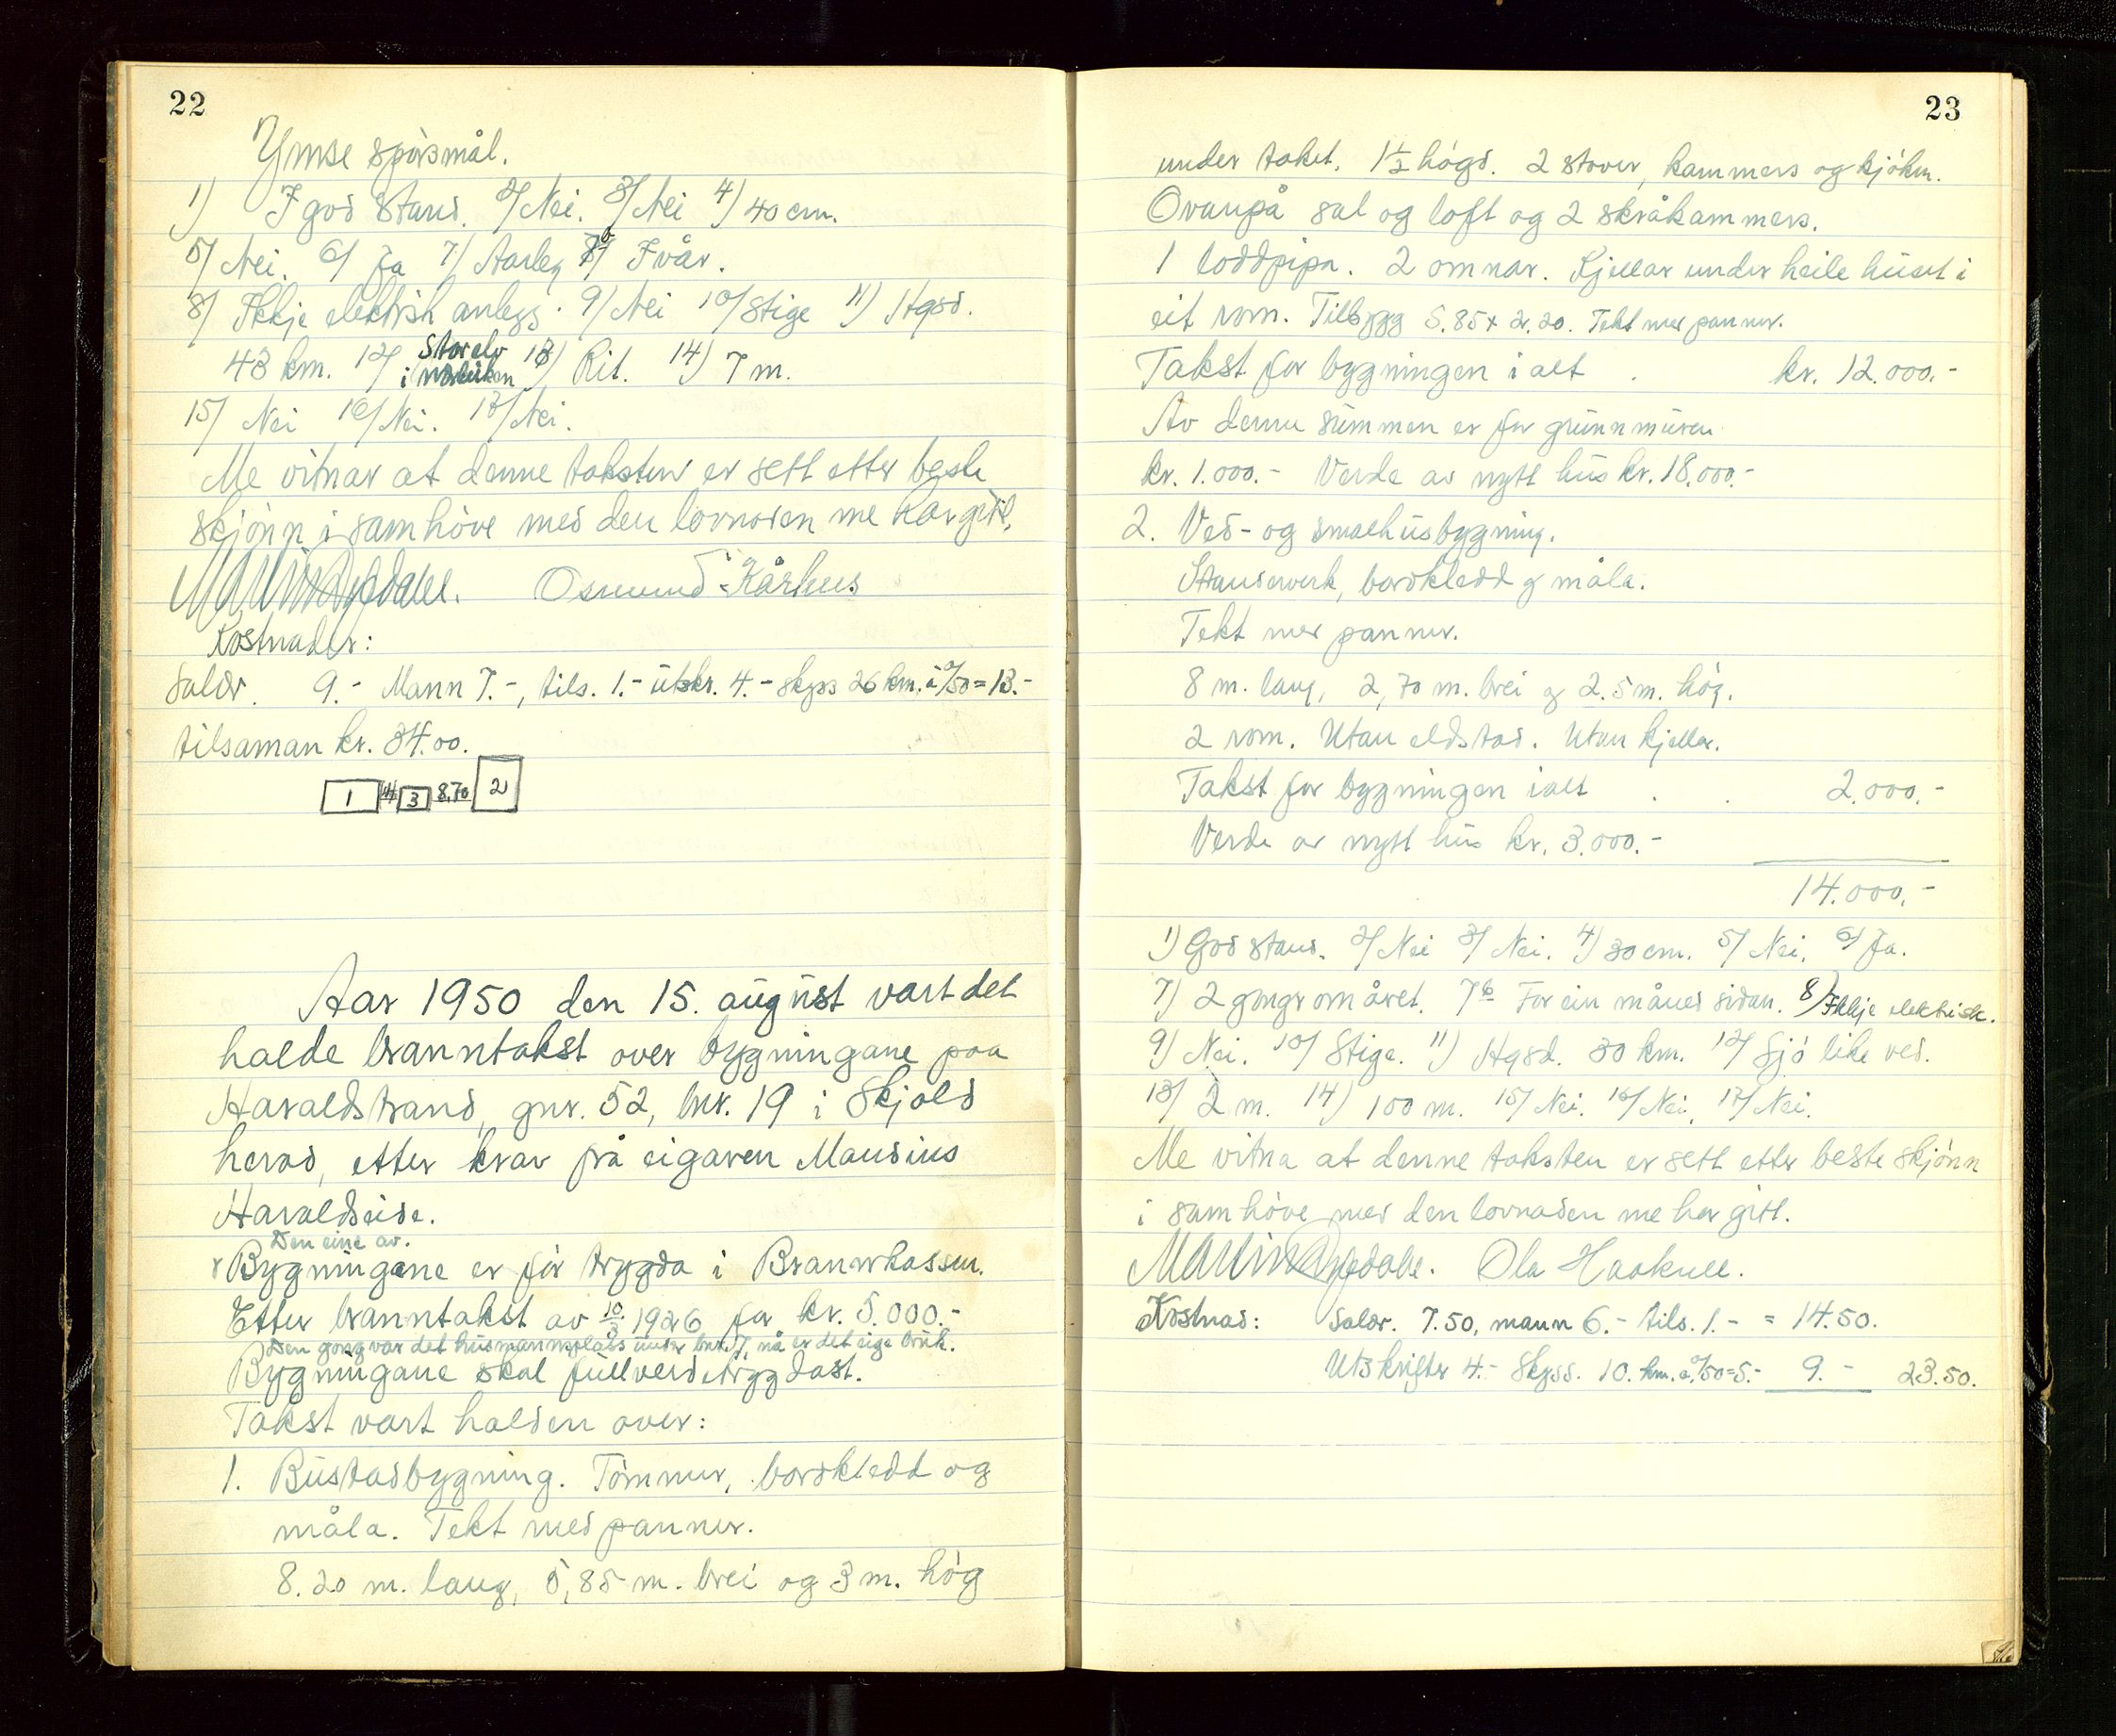 22
Ymse spørsmål.
1) I god stand. 2) Nei. 3) Nei 4) 40 cm.
5) Nei. 6) Ja 7) Aarleg 7b) I vår.
8) Ikkje elektrisk anlegg. 9) Nei 10) Stige 11) Hgsd.
43 km. 12) Storelv
i nærleiken 13) Rit. 14) 7 m.
15) Nei 16) Nei. 17) Nei.
Me vitnar at denne taksten er sett etter beste
skjønn i samhøve med den lovnaden me har gitt.
Osmund Kårhus
Kostnader:
Salær. 9.- Mann 7.-, tils. 1.- utskr. 4.- skyss 26 km. à 0/50 = 13.-
tilsaman kr. 34.00.
1 4 3 8,70 2
Aar 1950 den 15. august vart det
halde branntakst over bygningane paa
Haraldstrand, gnr. 52, bnr. 19 i Skjold
herad, etter krav frå eigaren Mandius
Haraldseide.
Den eine av.
Bygningane er før trygda i Brannkassen.
Etter branntakst av 10/3 1926 for kr. 5.000.-
Den gong var det husmannsplass under bnr. 7, nå er det eige bruk.
Bygningane skal fullverdtryggdast.
Takst vart halden over:
1. Bustadbygning. Tømmer, bordkledd og
måla. Tekt med panner.
8.20 m. lang, 5,85 m. brei og 3 m. høg
23
under taket. 1 1/2 høgd. 2 stover, kammers og kjøkn.
Ovanpå sal og loft og 2 skråkammers.
1 loddpipa. 2 omnar. Kjellar under heile huset i
eit rom. Tilbygg 5.85 x 2.20. Tekt med panner.
Takst for bygningen i alt . kr. 12.000.-
Av denne summen er for grunnmuren
kr. 1.000.- Verde av nytt hus kr. 18.000.-
2. Ved- og smalehusbygning.
Standerverk, bordkledd og måla.
Tekt med panner.
8 m. lang, 2,70 m. brei og 2.5 m. høg.
2 rom. Utan eldstad. Utan kjellar.
Takst for bygningen ialt . . 2.000.-
Verde av nytt hus kr. 3.000.-
14.000.-
1) God stand. 2) Nei 3) Nei. 4) 30 cm. 5) Nei. 6) Ja.
7) 2 gongr om året. 7b For ein månad sidan. 8) Ikkje elektrisk.
9) Nei. 10) Stige. 11) Hgsd. 30 km. 12) Sjø like ved.
13) 2 m. 14) 100 m. 15) Nei. 16) Nei. 17) Nei.
Me vitna at denne taksten er sett etter beste skjønn
i samhøve med den lovnaden me har gitt.
Ola Haaknee.
Kostnad: Salær. 7.50, mann 6.- tils. 1.- = 14.50.
Utskrifter 4.- Skyss. 10. km. à 0/50=5.- 9.- 23.50.